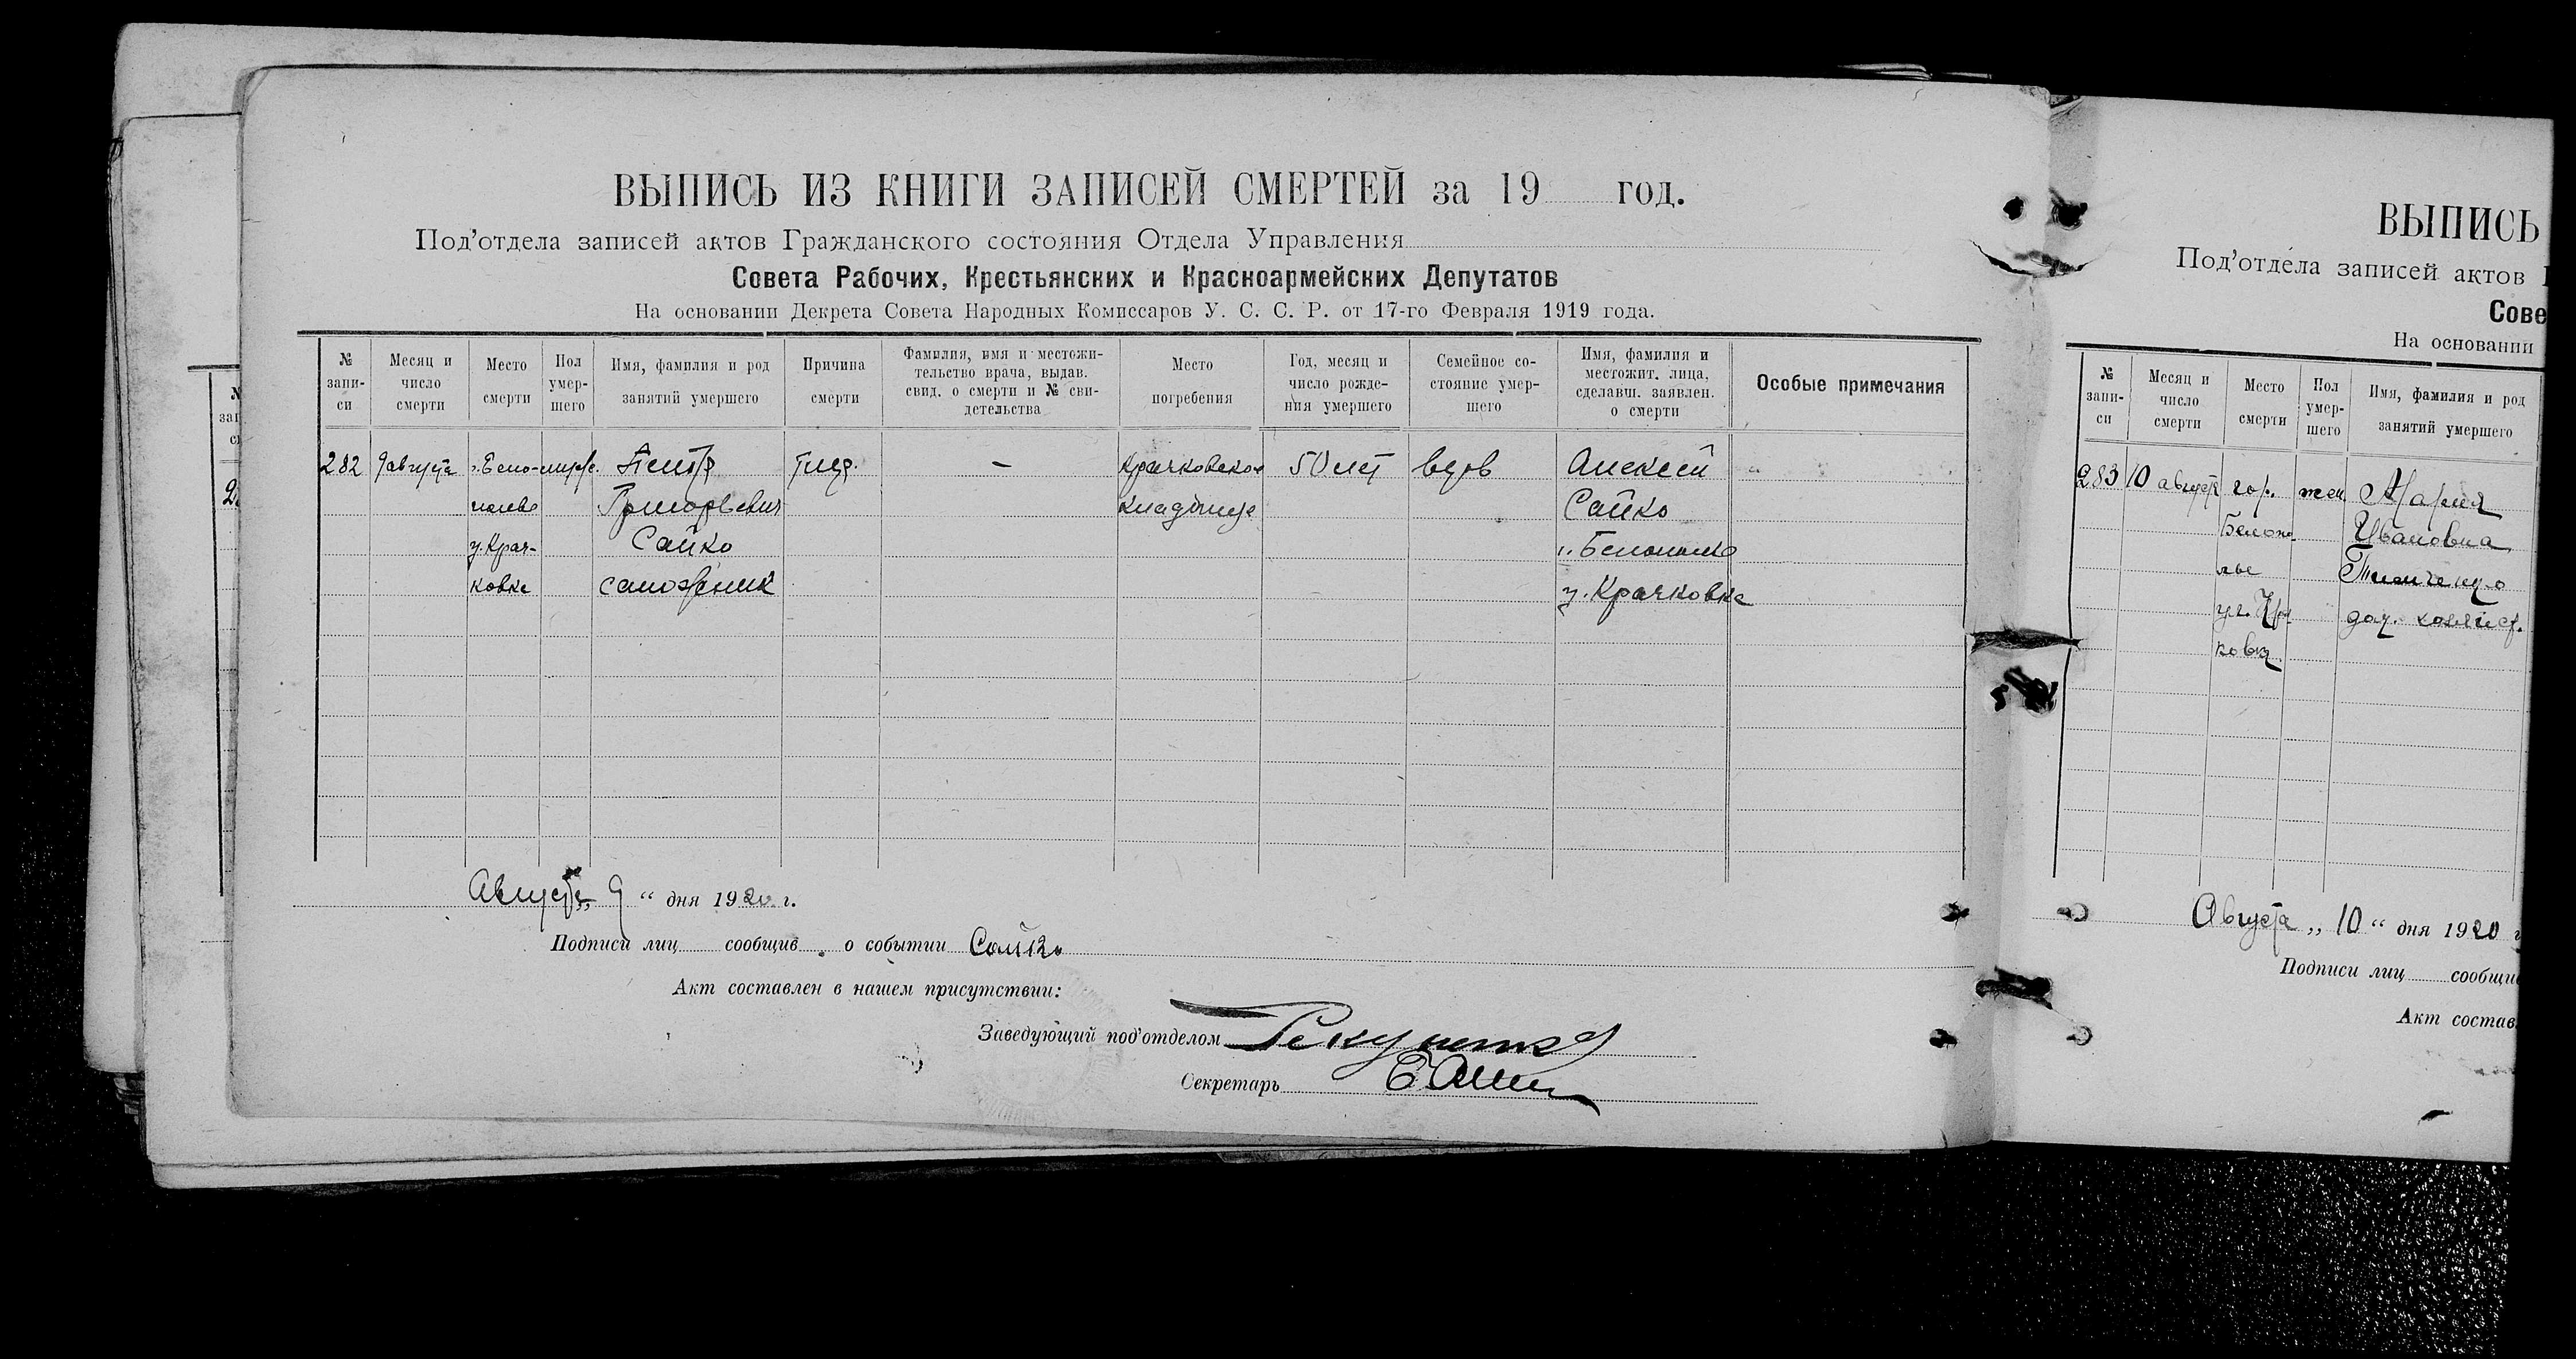 ВЫПИСЬ ИЗ КНИГИ ЗАПИСЕЙ СМЕРТЕЙ за 19 год.
Под’отдела записей актов Гражданского состояния Отдела Управления
Совета Рабочих, Крестьянских и Красноармейских Депутатов
На основании Декрета Совета Народных Комиссаров У. С. С. Р. от 17-го Февраля 1919 года.
№ запи-си
Месяц и число смерти
Место смерти
Пол умер-шего
Имя, фамилия и род занятий умершего
Причина смерти
Фамилия, имя и местожи-тельство врача, выдав. свид. о смерти и № сви-детельства
Место погребения
Год, месяц и число рожде-ния умершего
Семейное со-стояние умер-шего
Имя, фамилия и местожит. лица, сделавш. заявлен. о смерти
Особые примечания
282 9 августа Петр — Крачковское 50 лет вдов Алексей
Григорьевич кладбище Сайко
у. Крач- Сайко
ковка сапожник у. Крачковка
Августа „ 9 “ дня 1920 г.
Подписи лиц сообщив о событии Сайко
Акт составлен в нашем присутствии:
Заведующий под’отделом
Секретарь
ВЫПИСЬ
Под’отдела записей актов
Сове
На основании
№ запи-си
Месяц и число смерти
Место смерти
Пол умер-шего
Имя, фамилия и род занятий умершего
283 10 август гор. жен Мария
Белопо- Ивановна
лье
ковка
Августа „ 10 “ дня 1920
Подписи лиц сообщи
Акт состав